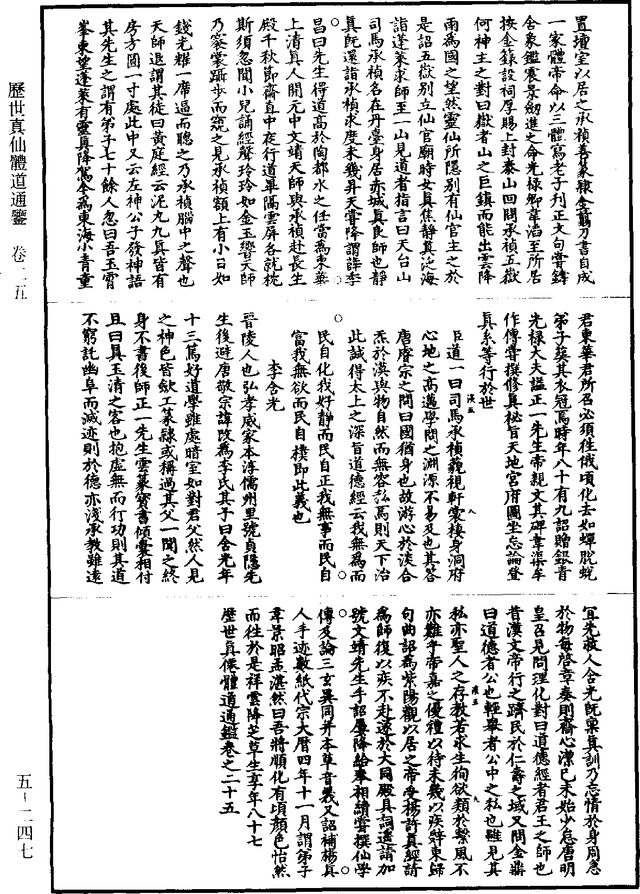 置壇室以居之承禎善篆隸金剪刀書自成
一家體帝命以三體寫老子刊正文句嘗鑄
含象鑑震景劒進之命光祿卿韋滔至所居
按金籙設祠厚賜上封泰山回問承禎五嶽
何神主之對曰嶽者山之巨鎮而能出雲降
雨為國之望然靈仙所隱別有仙官主之於
是詔五嶽別立仙官廟時女真焦靜真泛海
詣蓬萊求師至一山見道者指言曰天台山
司馬承禎名在丹臺身居赤城真良師也靜
真既還詣承禎求度未幾昇天嘗降謂薛季
昌曰先生得道高於陶都水之任當為東華
上清真人開元中文靖天師與承禎赴長生
殿千秋節齋直中夜行道畢隔雲屏各就枕
斯須忽聞小兒誦經聲玲玲如金玉響天師
乃褰裳躡步而窺之見承禎額上有小日如
錢光耀一席逼而聽之乃承禎腦中之聲也
天師退謂其徒曰黃庭經云泥丸九真皆有
房方圓一寸處此中又云左神公子發神語
其先生之謂有弟子七十餘人忽曰吾玉霄
峯東望蓬萊有靈真降駕今為東海小青童
君東華君所召必須往俄頃化去如蟬脫蛻
弟子葬其衣冠焉時年八十有九詔贈銀青
光祿大夫謚正一先生帝親文其碑韋渠牟
作傳嘗撰修真秘旨天地宮府圖坐忘論登
真系等行於世
臣道一曰司馬承禎藐視軒裳棲身洞府
心地之高邁學問之淵源不易及也其答
唐睿宗之問曰國猶身也故游心於淡合
炁於漠與物自然而無容私焉則天下治
此誠得太上之深旨道德經云我無為而
民自化我好靜而民自正我無事而民自
富我無欲而民自樸即此義也
李含光
晉陵人也弘孝威家本淳儒州里號貞隱先
生後避唐敬宗諱改為李氏其子曰含光年
十三篤好道學雖處暗室如對君父然人見
之神色皆歛工篆隸或稱過其父一聞之終
身不書後師正一先生雲篆寶書傾囊相付
且曰真玉清之客也抱虛無而行功則其道
不窮託幽阜而滅迹則於德亦淺承教難遠
宜先救人含光既稟真訓乃忘情於身周急
於物每啓章奏則齋心潔己未始少怠唐明
皇召見問理化對曰道德經者君王之師也
昔漢文帝行之躋民於仁壽之域又問金鼎
曰道德者公也輕舉者公中之私也雖見其
私亦聖人之存教若求生徇欲類於繫風不
亦難乎帝嘉之優禮以待未幾以疾辭東歸
句曲詔為紫陽觀以居之帝受楊許真經請
為師復以疾不赴遂於大同殿具詞遙請加
號文靖先生手詔屢降給奉相續嘗撰仙學
傳及論三玄異同并本草音義又詔補楊真
人手迹數紙代宗大曆四年十一月謂弟子
韋景昭孟湛然曰吾將順化有頃顏色怡然
而往於是祥雲降芝草生享年八十七
歷世真仙體道通鑑卷之二十五
歷世真仙體道通鑒 卷二五
五—二四七